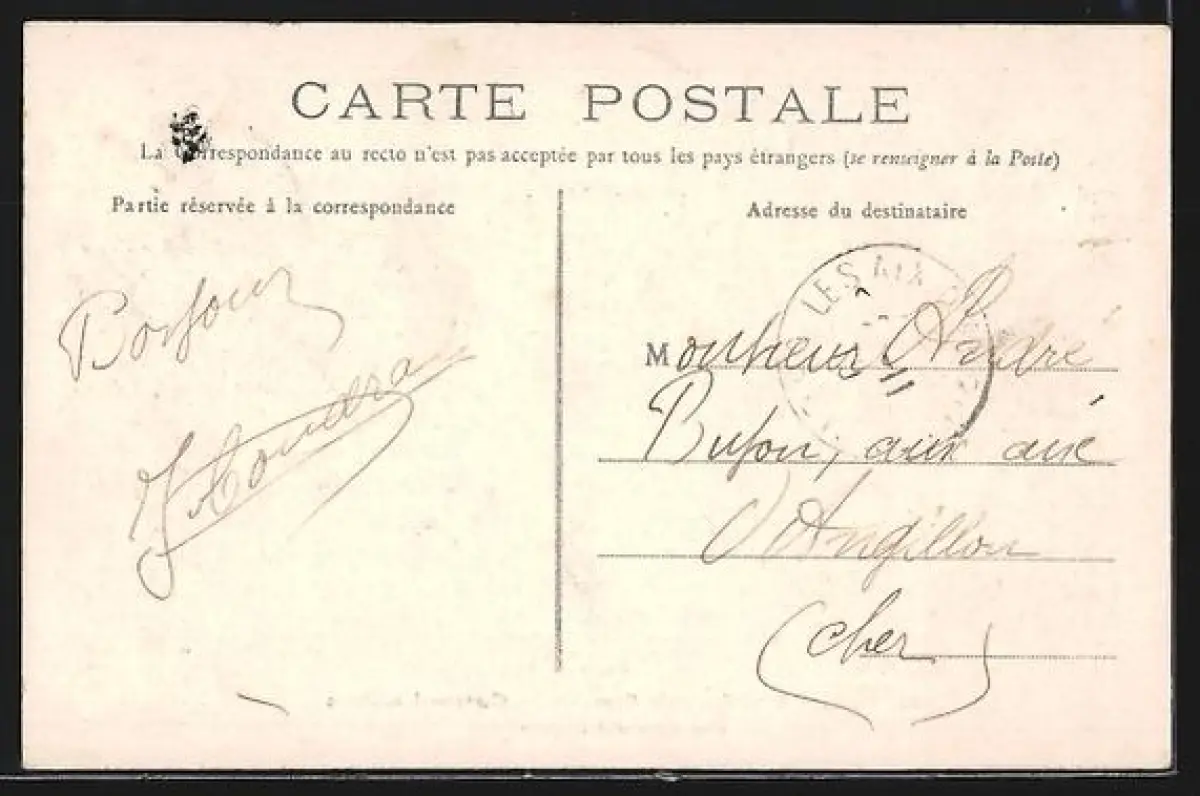 CARTE POSTALE
La Correspondance au recto n'est pas acceptée par tous les pays étrangers (se renseigner à la Poste)
Partie réservée à la correspondance
Bonjour
Adresse du destinataire
LES AIX
Monsieur André
Bufon, aux aix
d'Angillon
(cher)